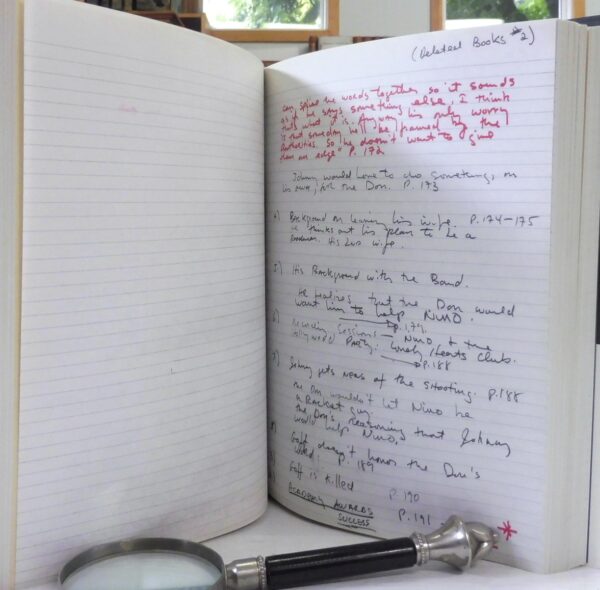 (Related Books #2)
can splice the words together so it sounds
as if he says something else, I think
that's what it is. Anyway his only worry
is that someday he'll be framed by the
authorities. So he doesn't want to give
them an edge" P. 172
Johnny would have to do something, on
his own, for the Don. P. 173
4) Background on leaving his wife. P. 174-175
He thinks out his plan to be a
His 2nd wife.
5) His Background with the Band.
He realizes that the Don would
want him to help NINO.
P. 179.
6) Recording Sessions - NINO & the
Hollywood PARTY: Lonely Hearts Club.
P. 188
7) Johnny gets news of the shooting. P. 188
The Don wouldn't let Nino be
a Racket guy
the Don's reasoning that Johnny
would help Nino.
8) Goff doesn't honor the Don's
P. 189
Goff is killed P. 190
ACADEMY AWARDS
SUCCESS P. 191 *